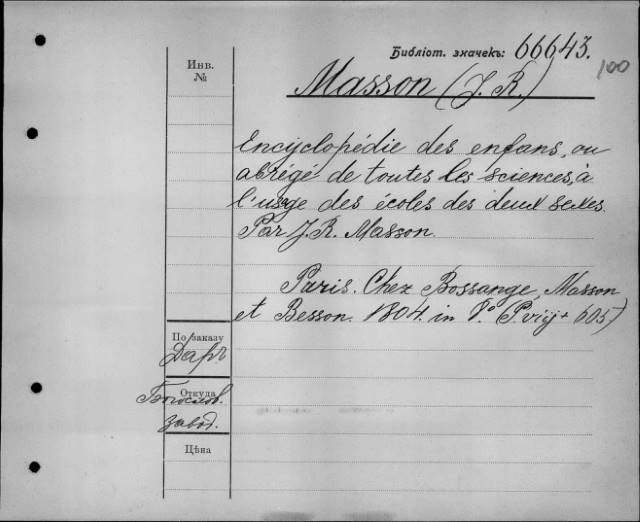 Библіот. значекъ: 66643.
100
Инв.
№
Masson (J. R.)
Encyclopédie des enfans, ou
abrégé de toutes les sciences, à
l'usage des écoles des deux sexes.
Par J. R. Masson.
Paris. Chez Bossange, Masson
et Besson. 1804. in 8º (P. viij + 605)
По заказу
Даръ
Откуда
Богослов.
завод.
Цѣна